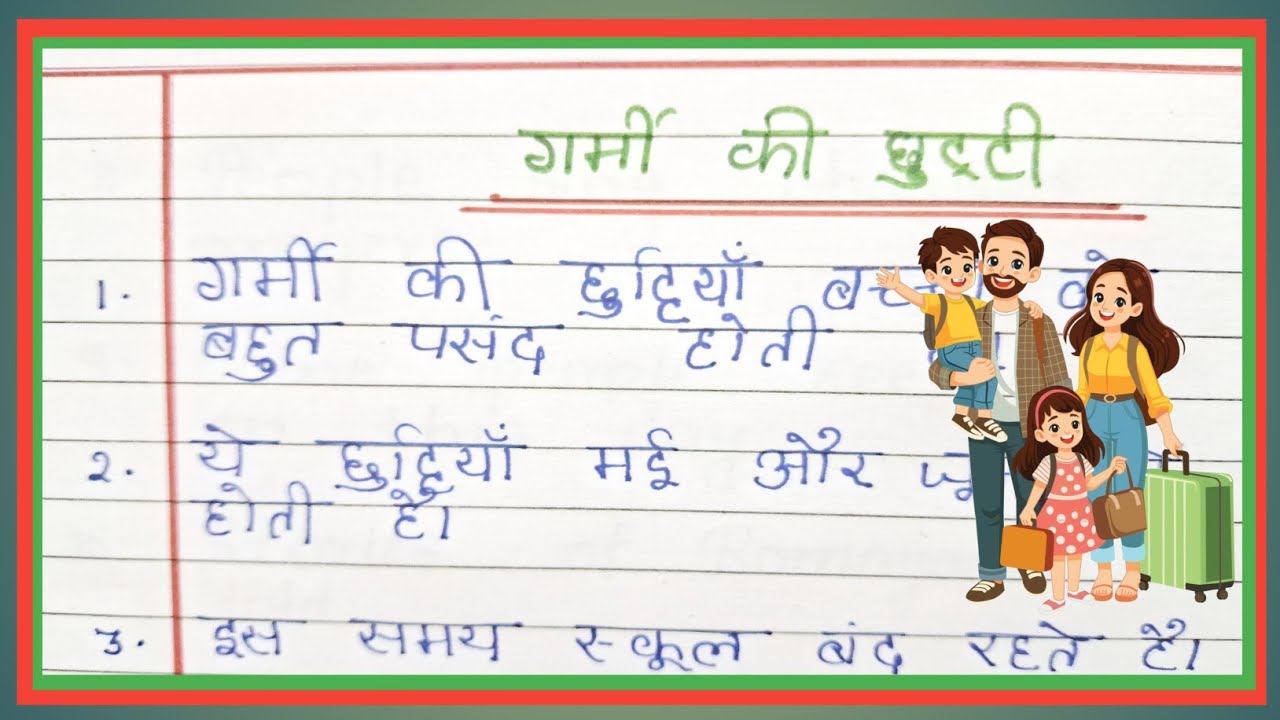 गर्मी की छुट्टी
1. गर्मी की छुट्टियाँ
बहुत पसंद होती
2. ये छुट्टियाँ मई और
होती है।
3. इस समय स्कूल बंद रहते है।